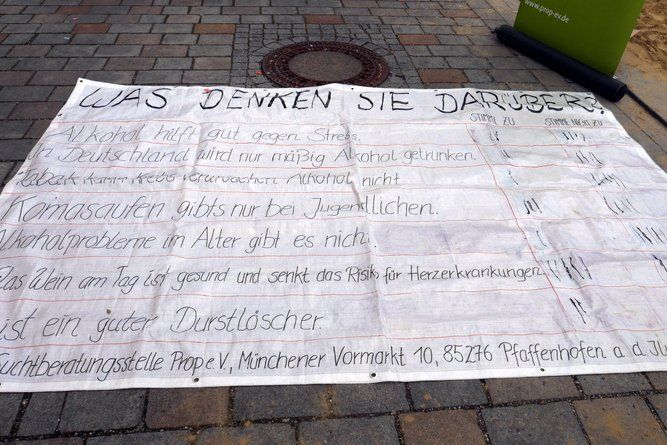 www.prop-ev.de
WAS DENKEN SIE DARÜBER?
STIMME ZU STIMME NICHT ZU
Alkohol hilft gut gegen Stress.
In Deutschland wird nur mäßig Alkohol getrunken.
Tabak kann Krebs verursachen, Alkohol nicht
Komasaufen gibts nur bei Jugendlichen.
Alkoholprobleme im Alter gibt es nicht.
Glas Wein am Tag ist gesund und senkt das Risiko für Herzerkrankungen
ist ein guter Durstlöscher.
Suchtberatungsstelle Prop e.V., Münchener Vormarkt 10, 85276 Pfaffenhofen a. d. Ilm